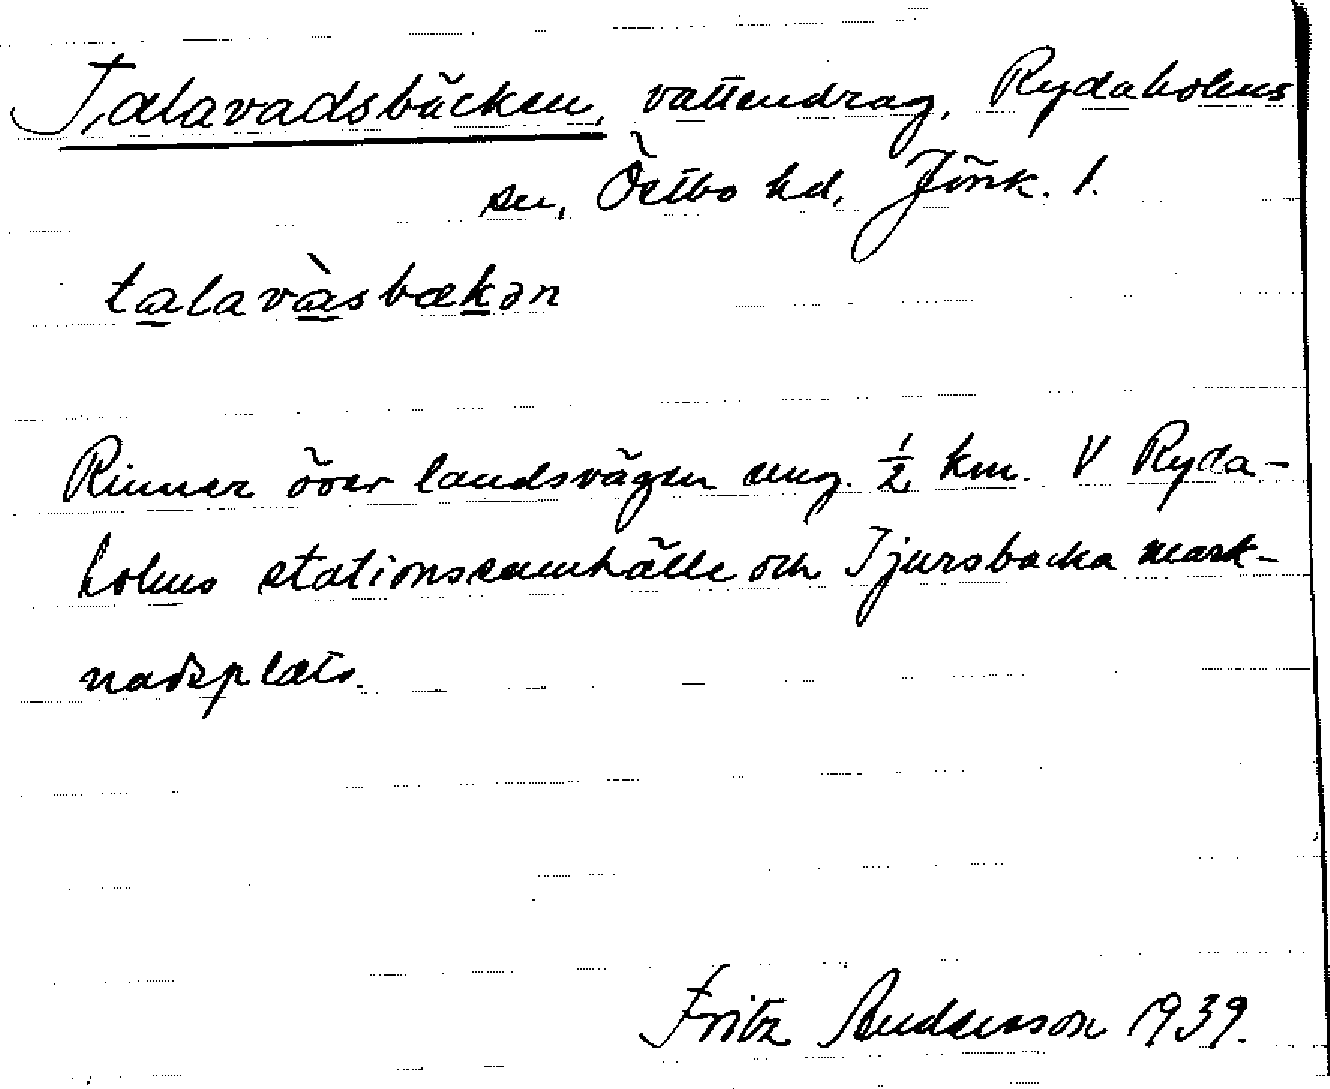 Talavadsbäcken, vattendrag, Rydaholms
sn, Östbo hd, Jönk. l.
talavàsbækən
Rinner över landsvägen ung. ½ km. V Ryda-
holms stationssamhälle och Tjursbacka mark-
nadsplats.
Fritz Andersson 1939.